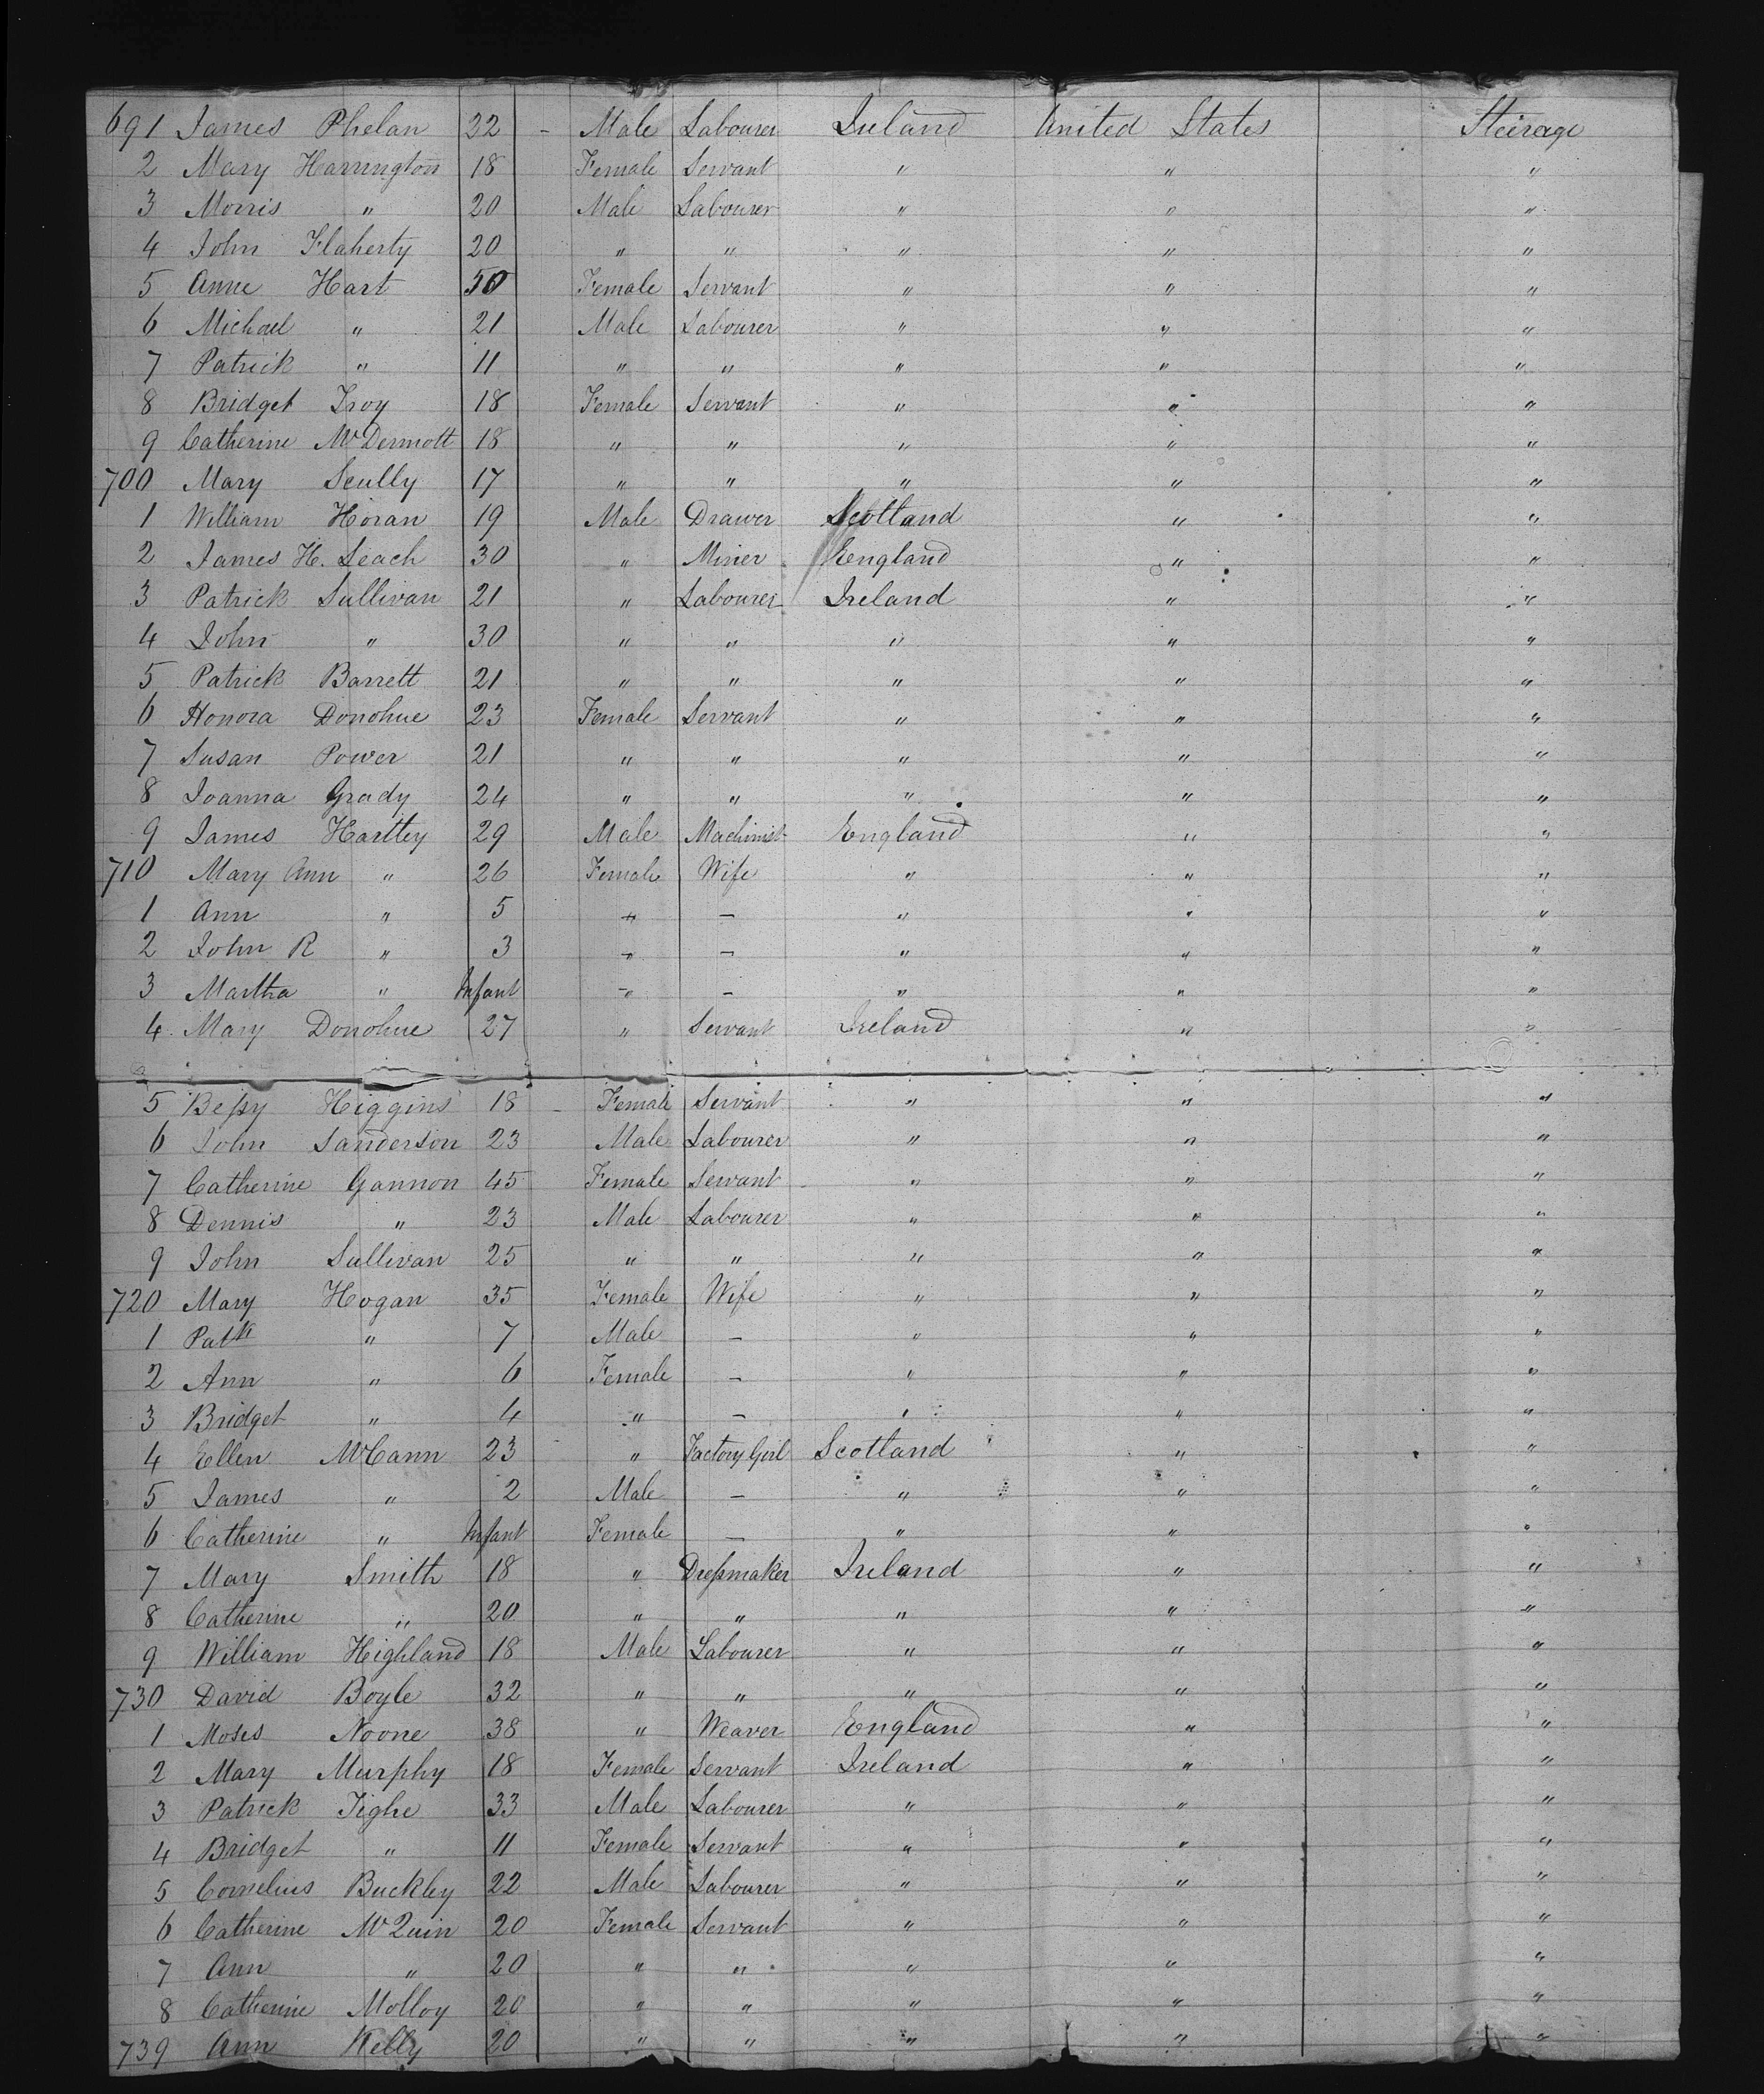 691 James Phelan 22 - Male Labourer Ireland United States Steerage
2 Mary Harrington 18 Female Servant " " "
3 Morris " 20 Male Labourer " " "
4 John Flaherty 20 " " " " "
5 Anne Hart 50 Female Servant " " "
6 Michael " 21 Male Labourer " " "
7 Patrick " 11 " " " " "
8 Bridget Troy 18 Female Servant " " "
9 Catherine McDermott 18 " " " " "
700 Mary Scully 17 " " " " "
1 William Horan 19 Male Drawer Scotland " "
2 James H. Leach 30 " Miner England " "
3 Patrick Sullivan 21 " Labourer Ireland " "
4 John " 30 " " " " "
5 Patrick Barrett 21 " " " " "
6 Honora Donohue 23 Female Servant " " "
7 Susan Power 21 " " " " "
8 Joanna Grady 24 " " " " "
9 James Hartley 29 Male Machinist England " "
710 Mary Ann " 26 Female Wife " " "
1 Ann " 5 " - " " "
2 John R " 3 " - " " "
3 Martha " Infant " - " " "
4 Mary Donohue 27 " Servant Ireland " "
5 Bessy Higgins 18 - Female Servant " " "
6 John Sanderson 23 Male Labourer " " "
7 Catherine Gannon 45 Female Servant " " "
8 Dennis " 23 Male Labourer " " "
9 John Sullivan 25 " " " " "
720 Mary Hogan 35 Female Wife " " "
1 Patk " 7 Male - " " "
2 Ann " 6 Female - " " "
3 Bridget " 4 " - " " "
4 Ellen McCann 23 " Factory Girl Scotland " "
5 James " 2 Male - " " "
6 Catherine " Infant Female - " " "
7 Mary Smith 18 " Dressmaker Ireland " "
8 Catherine " 20 " " " " "
9 William Highland 18 Male Labourer " " "
730 David Boyle 32 " " " " "
1 Moses Noone 38 " Weaver England " "
2 Mary Murphy 18 Female Servant Ireland " "
3 Patrick Tighe 33 Male Labourer " " "
4 Bridget " 11 Female Servant " " "
5 Cornelius Buckley 22 Male Labourer " " "
6 Catherine McQuin 20 Female Servant " " "
7 Ann " 20 " " " " "
8 Catherine Molloy 20 " " " " "
739 Ann Kelly 20 " " " " "